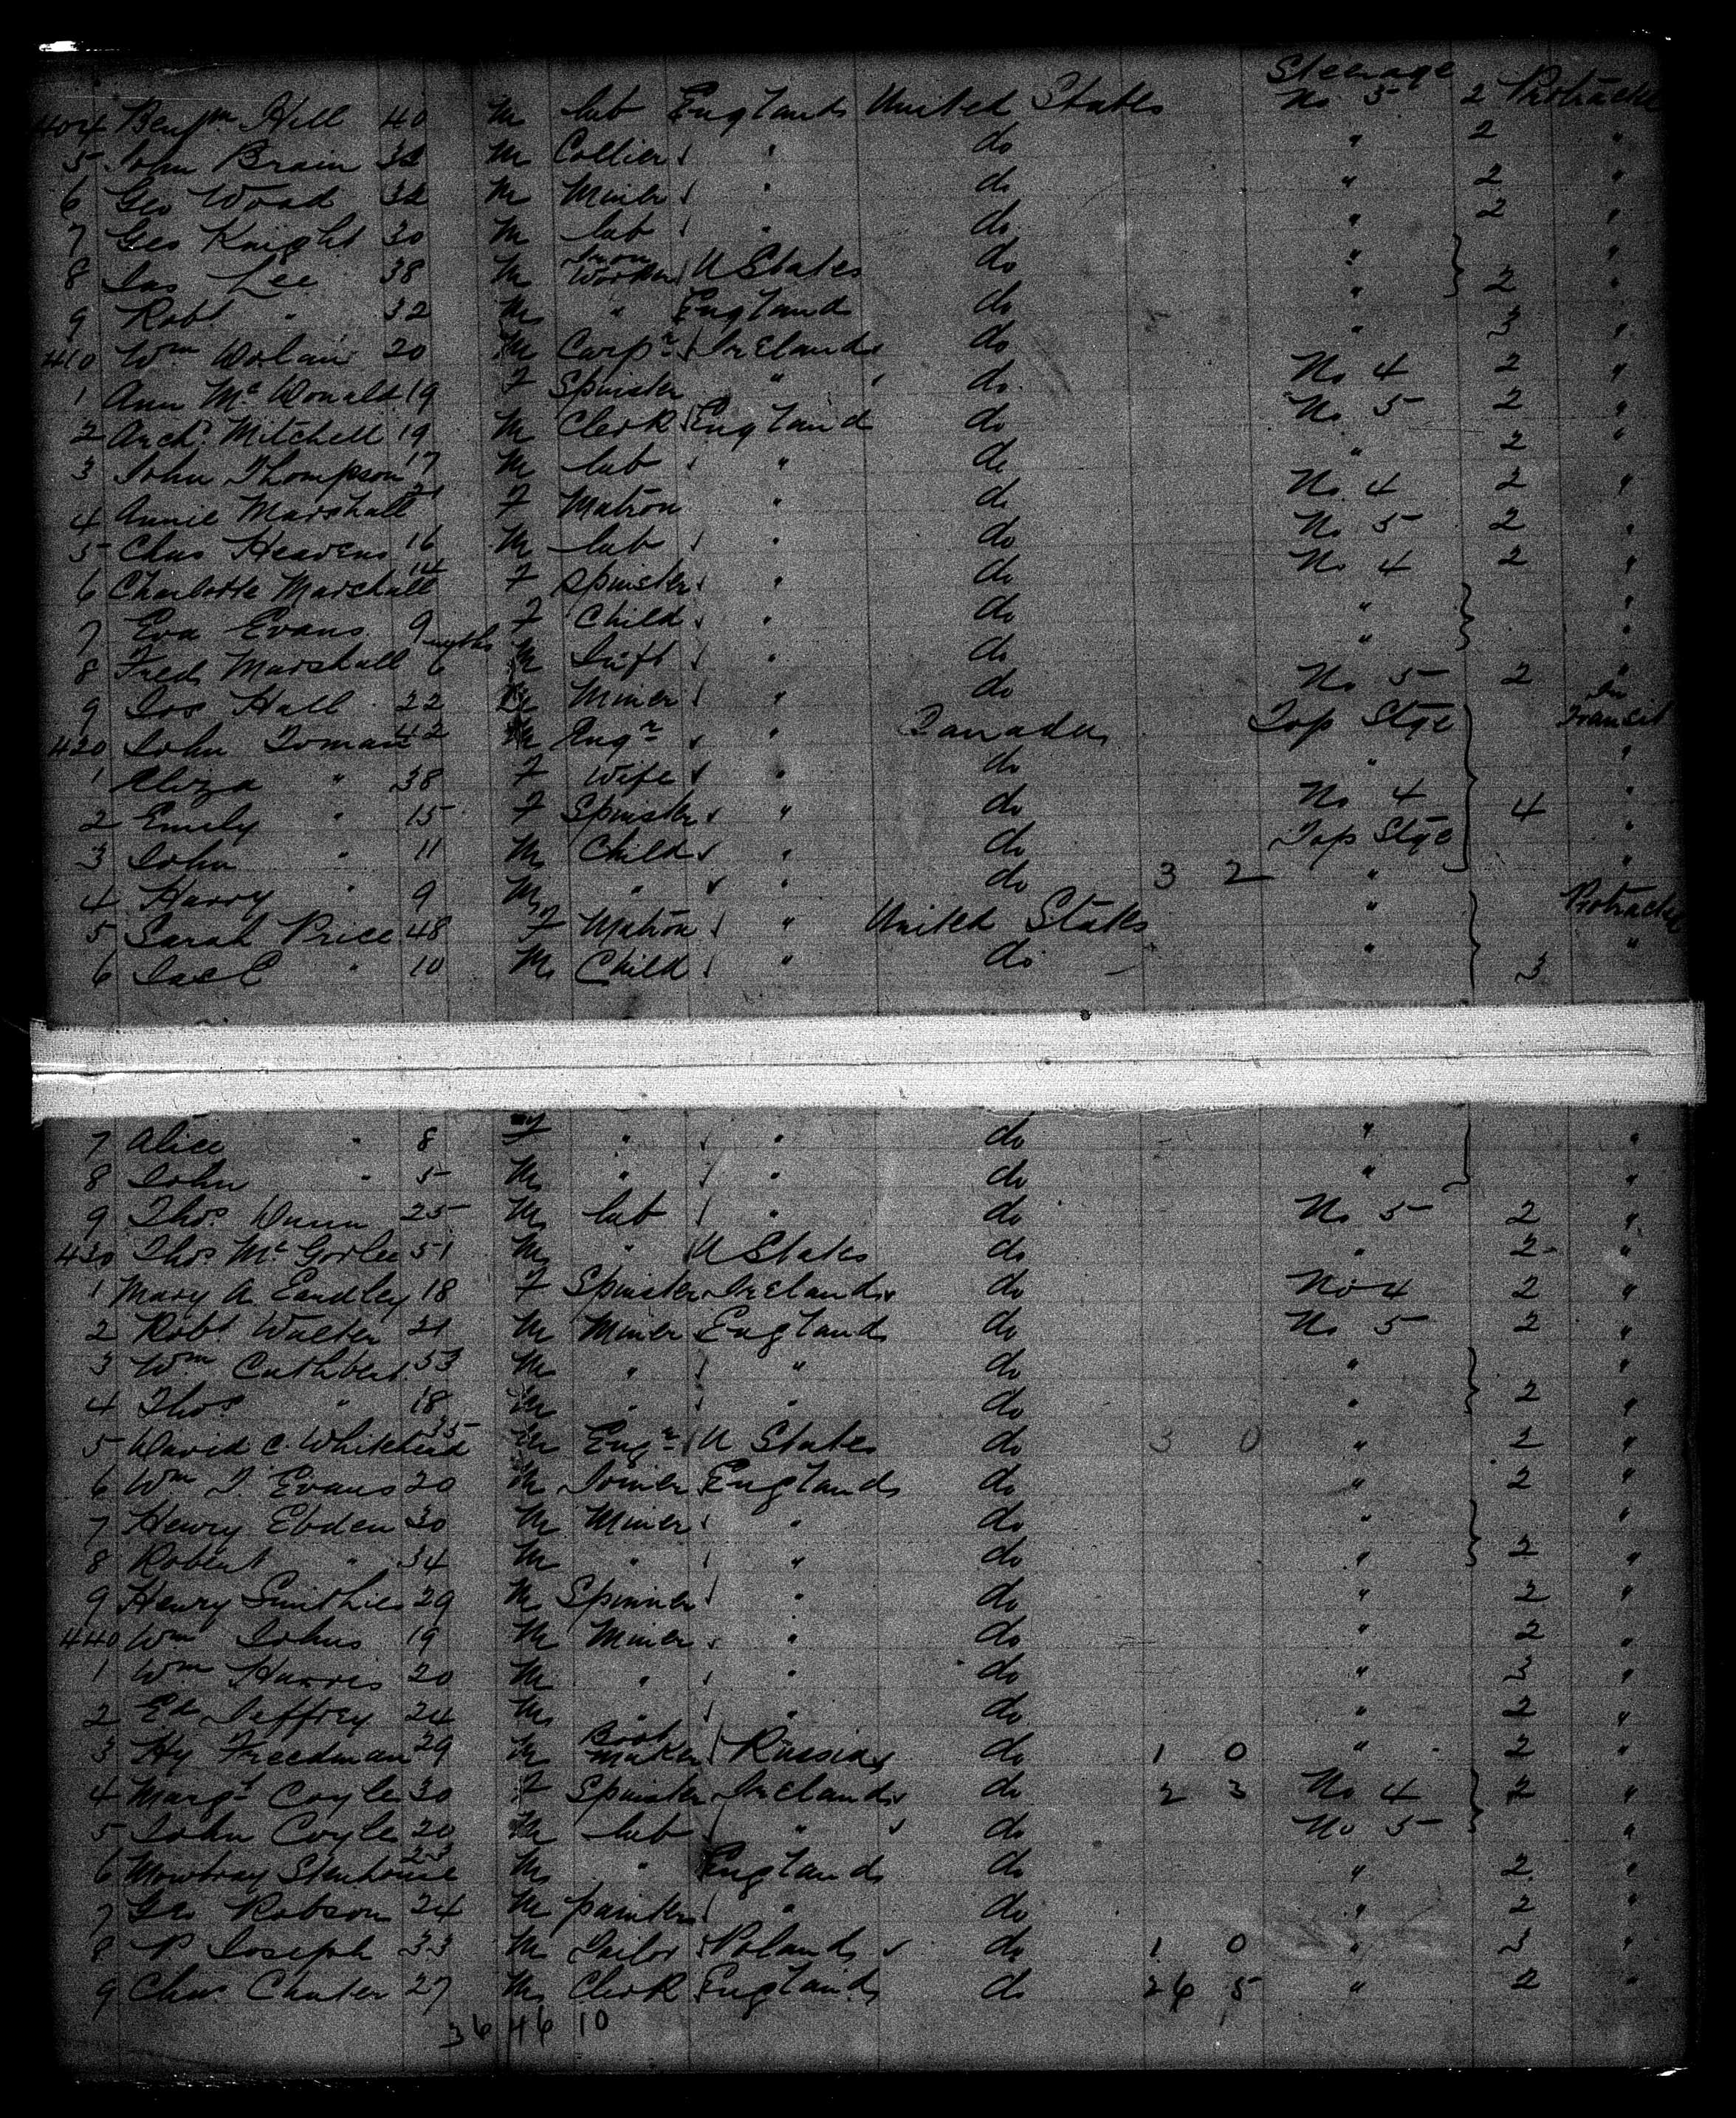 Steerage
404 Benjm Hill 40 M lab England United States No 5 2 Protracted
5 John Brain 32 M Collier " do " 2 "
6 Geo Wood 32 M Miner " do " 2 "
7 Geo Knight 30 M lab " do " 2 "
8 Jas Lee 38 M Iron Worker U States do " "
9 Robt " 32 M " England do " 2 "
410 Wm Dolan 20 M Carpr Ireland do " 3 "
1 Ann McDonald 19 F Spinster " do No 4 2 "
2 Archd Mitchell 19 M Clerk England do No 5 2 "
3 John Thompson 17 M lab " do " 2 "
4 Annie Marshall 21 F Matron " do No 4 2 "
5 Chas Heavens 16 M lab " do No 5 2 "
6 Charlotte Marshall 14 F Spinster " do No 4 2 "
7 Eva Evans 9 F Child " do " "
8 Fred Marshall 6 mths M Inft " do " "
9 Jos Hall 22 M Miner " do No 5 2 "
420 John Toman 42 M Engr " Canada Top Stge In Transit
1 Eliza " 38 F Wife " do " "
2 Emily " 15 F Spinster " do No 4 4 "
3 John " 11 M Child " do Top Stge "
4 Harry " 9 M " " do 3 2 " "
5 Sarah Price 48 F Matron " United States " Protracted
6 " 10 M Child " do " 3 "
7 Alice " 8 F " " do " "
8 John " 5 M " " do " "
9 Thos Dunn 25 M lab " do No 5 2 "
430 Thos McGorlee 51 M " U States do " 2 "
1 Mary A. Eardley 18 F Spinster Ireland do No 4 2 "
2 Robt Walter 21 M Miner England do No 5 2 "
3 Wm Cuthbert 53 M " " do " "
4 Thos " 18 M " " do " 2 "
5 David C. Whitehead 35 M Engr U States do 3 0 " 2 "
6 Wm J. Evans 20 M Joiner England do " 2 "
7 Henry Ebden 30 M Miner " do " "
8 Robert " 34 M " " do " 2 "
9 Henry Smithies 29 M Spinner " do " 2 "
440 Wm Johns 19 M Miner " do " 2 "
1 Wm Harris 20 M " " do " 3 "
2 Ed Jeffrey 24 M " " do " 2 "
3 Hy Freedman 29 M Boot Maker Russia do 1 0 " 2 "
4 Margt Coyle 30 F Spinster Ireland do 2 3 No 4 2 "
5 John Coyle 20 M lab " do No 5 "
6 Mowbray Stenhouse 23 M " England do " 2 "
7 Geo Robson 24 M painter " do " 2 "
8 P Joseph 33 M Tailor Poland do 1 0 " 3 "
9 Chas Chater 27 M Clerk England do 26 5 " 2 "
36 46 10